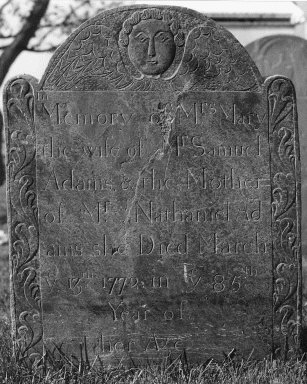 Memory of Mrs Mary
the wife of Mr Samuel
Adams & the Mother
of Mr Nathaniel Ad
ams she Died March
ye 13th 1772 in ye 86th
Year of
her Age